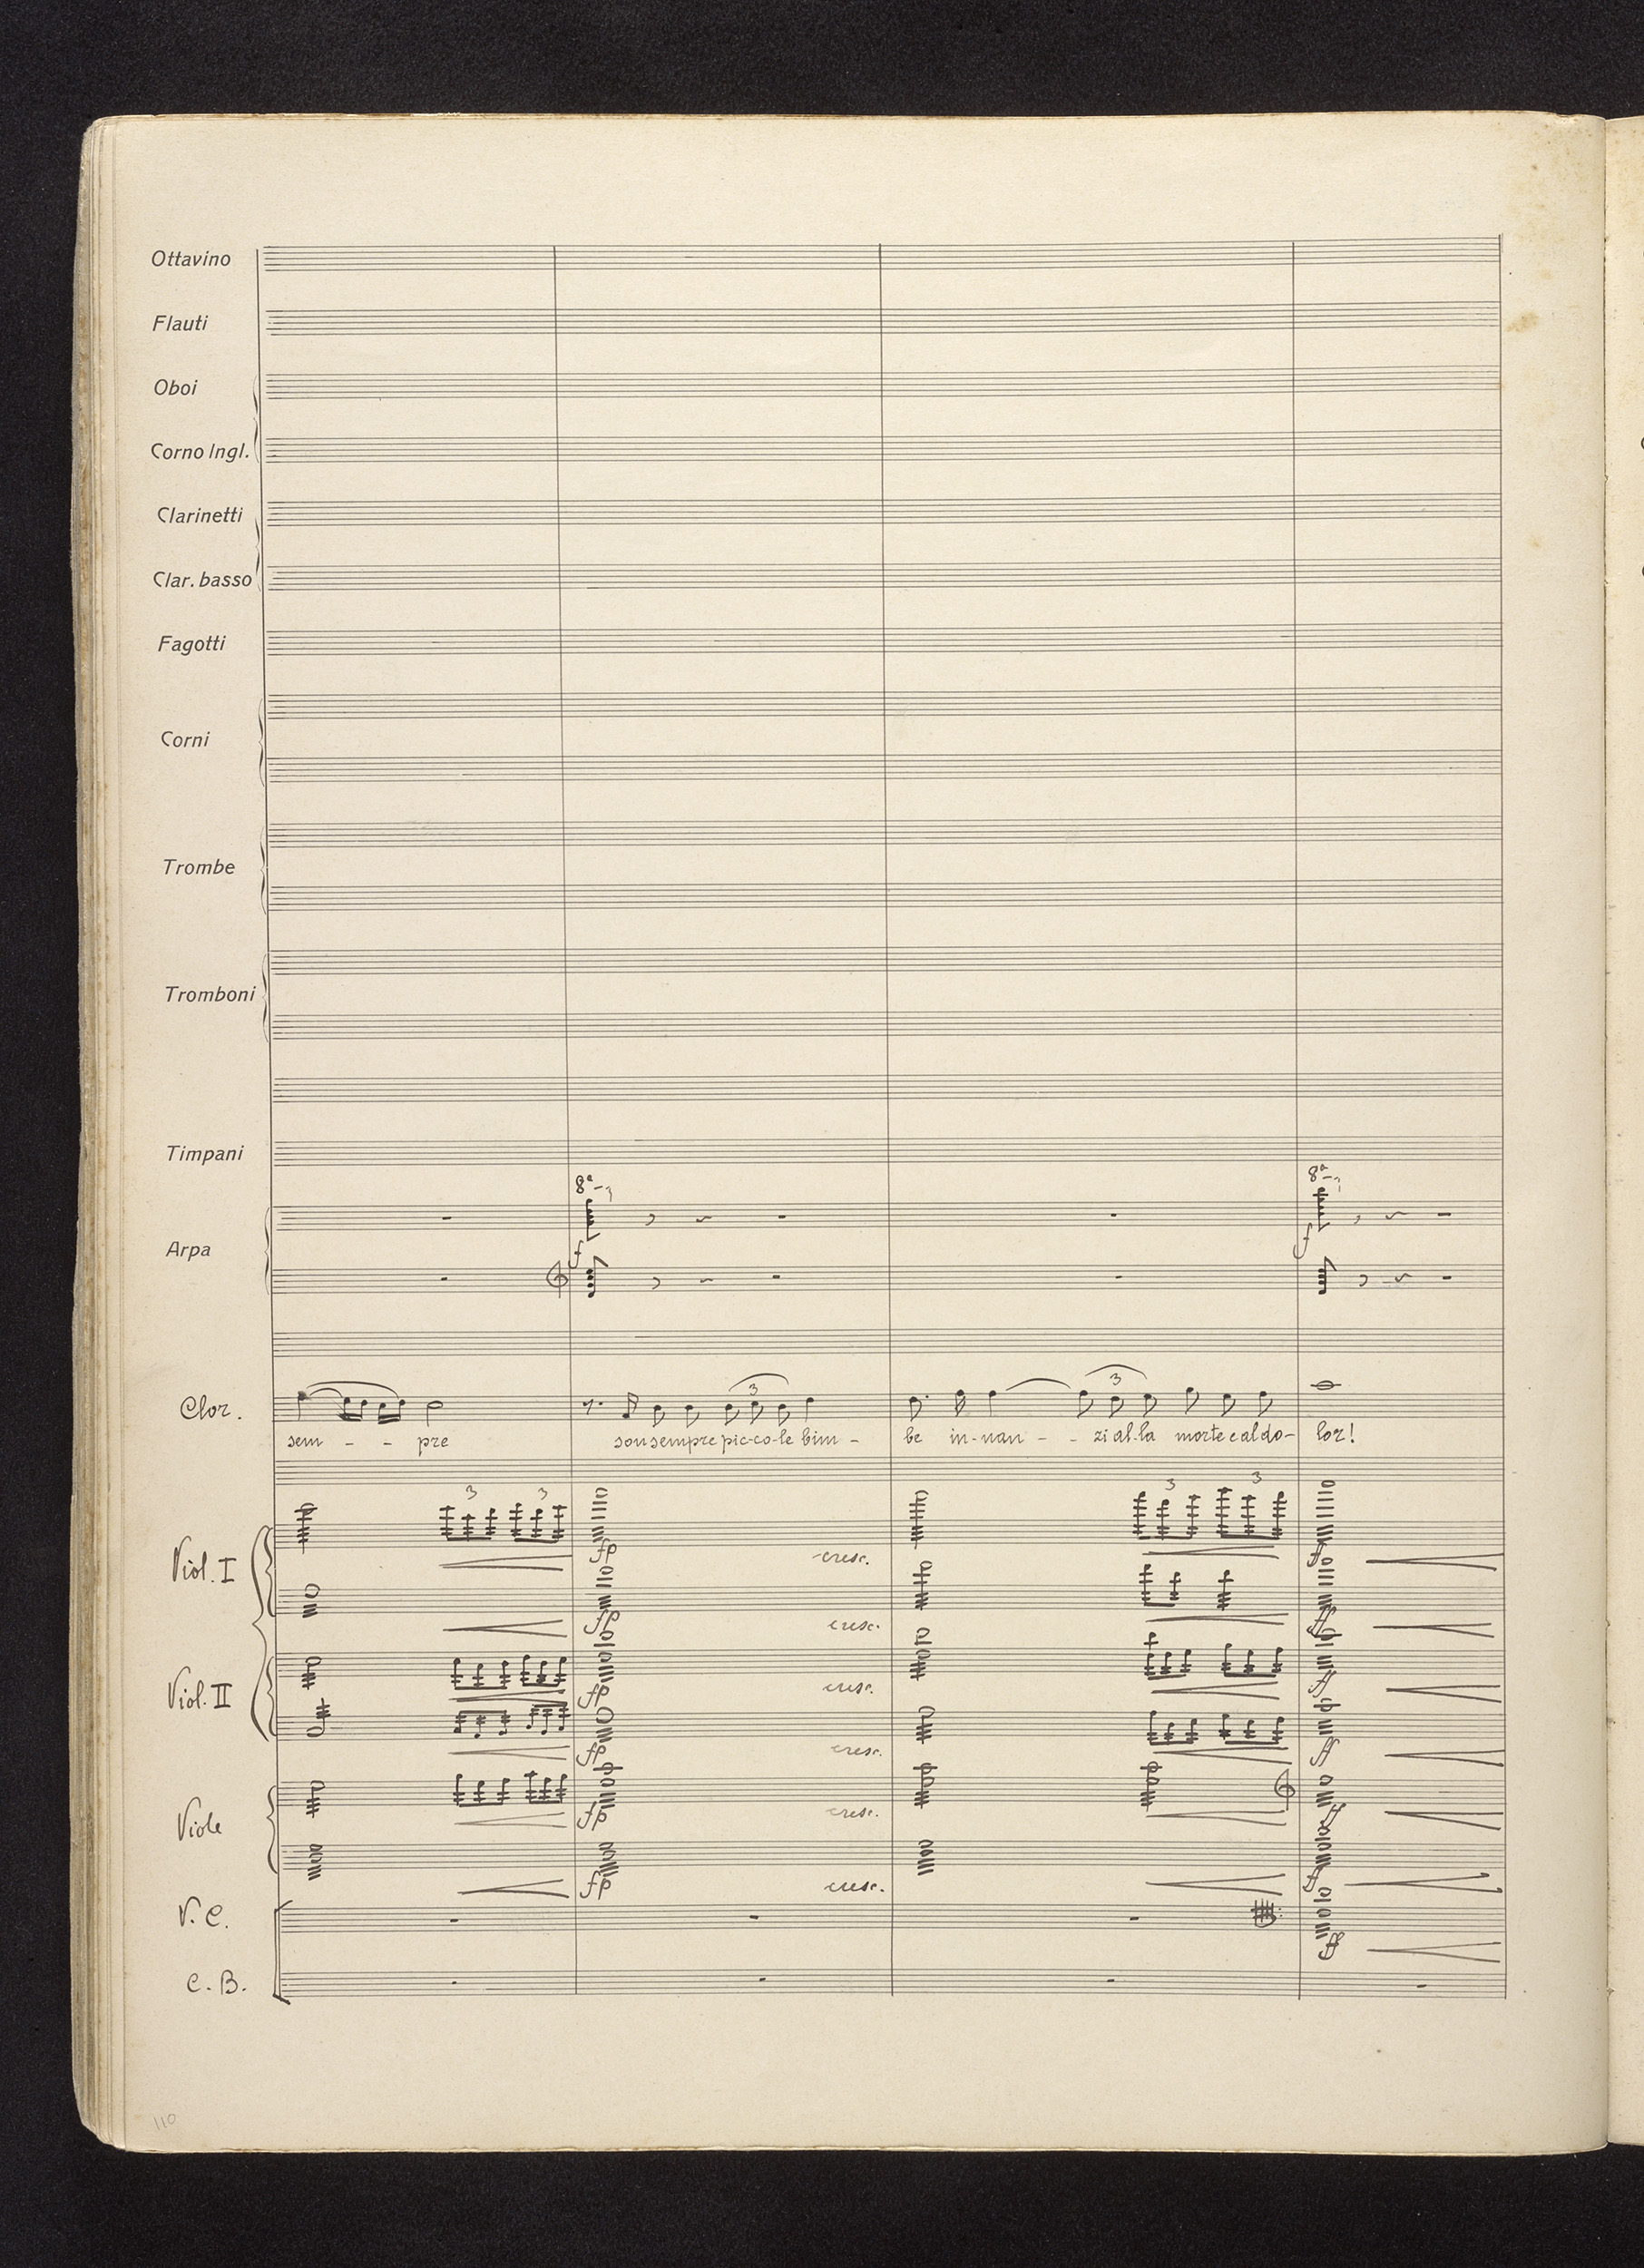 Ottavino
Flauti
Oboi
Corno Ingl.
Clarinetti
Clar. basso
Fagotti
Corni
Trombe
Tromboni
Timpani
8ª 8ª
Arpa
f f
Clor.
3 3
sem - - pre son sempre pic-co-le bim - be in-nan - - zi al-la morte e al do- lor!
3 3 3 3
Viol. I
fp cresc. f
fp cresc. ff
Viol. II
fp cresc. ff
fp cresc. ff
Viole
fp cresc. ff
fp cresc. ff
V. C.
ff
C. B.
110